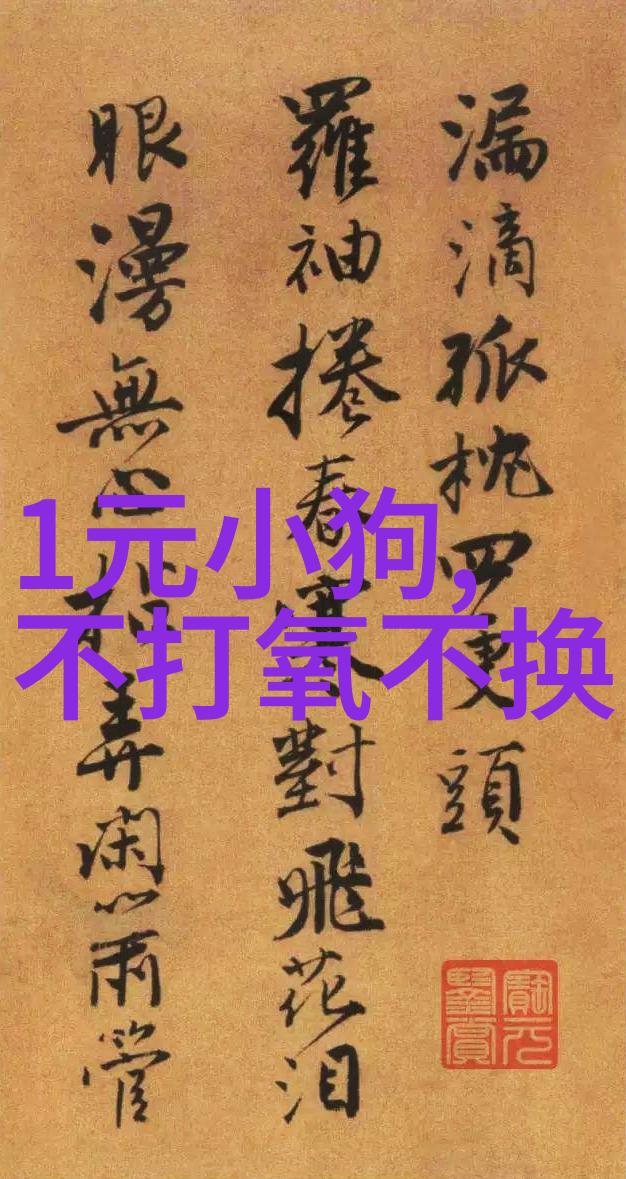 漏滴孤枕四更頭
羅袖捲春寒對飛花泪
眼漫無心弄閑心雨管
1元小狗,
不打氧不换